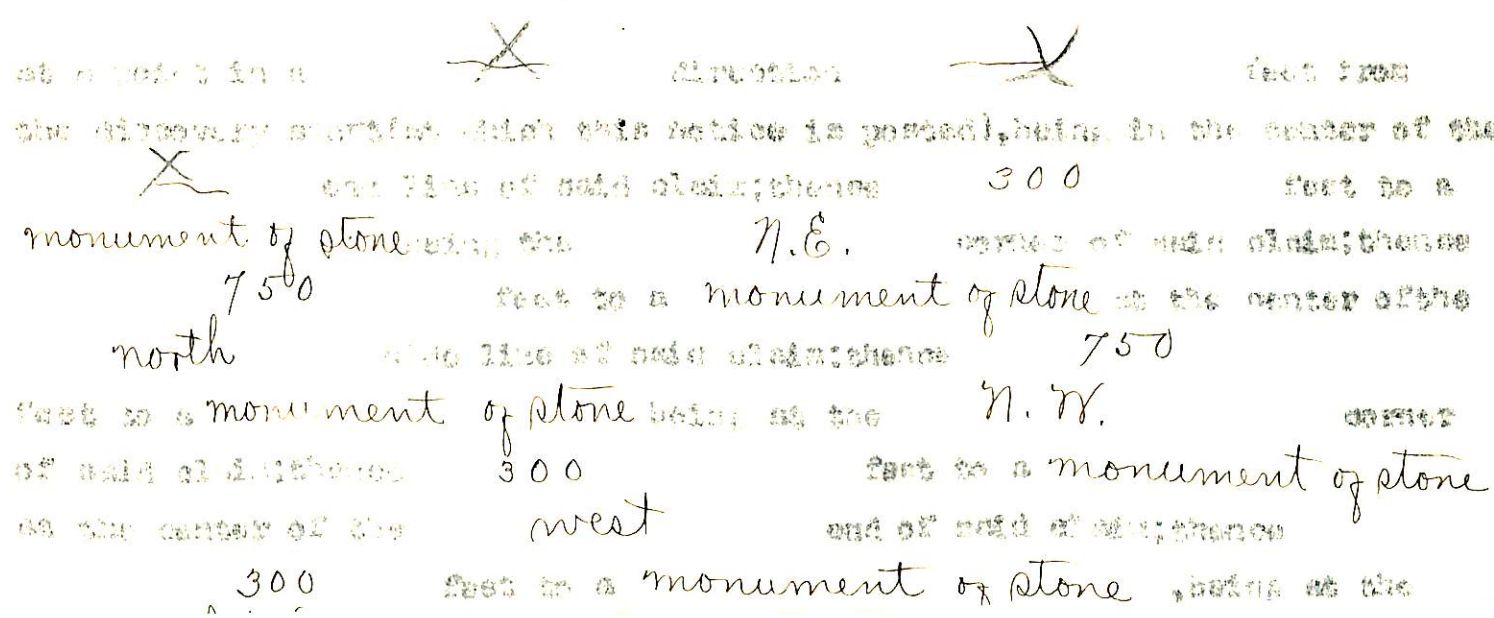 at a point in a X direction X feet from
the discovery (at which this notice is posted),being in the center of the
X end line of said claim;thence 300 feet to a
monument of stone being the N.E. corner of said claim;thence
750 feet to a monument of stone at the center ofthe
north side line of said claim;thence 750
feet to a monument of stone being at the N. W. corner
of said claim;thence 300 feet to a monument of stone
at the center of the west end of said claim;thence
300 feet to a monument of stone ,being at the